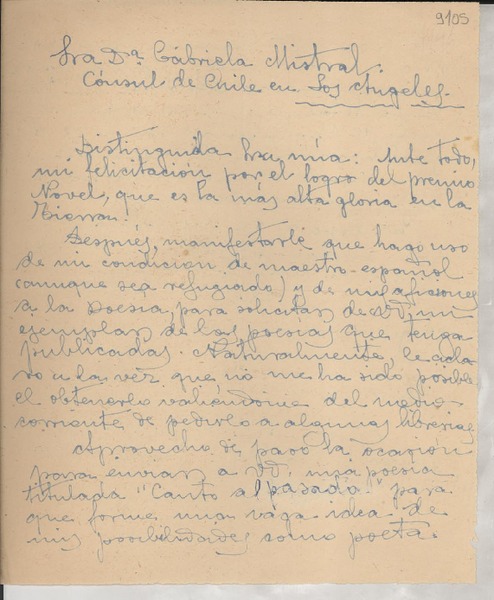 9105
Sra Dª Gabriela Mistral.
Cónsul de Chile en Los Angeles.
Distinguida Sra mía: Ante todo,
mi felicitación por el logro del premio
Novel, que es la más alta gloria en la
Tierra.
Después, manifestarle que hago uso
de mi condición de maestro español
(aunque sea refugiado) y de mis aficiones
a la poesía, para solicitar de Vd, un
ejemplar de las poesías que tenga
publicadas. Naturalmente, le acla
ro a la vez que no me ha sido posibl
el obtenerlo valiéndome del medio
corriente de pedirlo a algunas librerías
Aprovecho de paso la ocasión
para enviar a Vd. una poesía
titulada "Canto al pasado" para
que forme una vaga idea de
mis posibilidades como poeta.